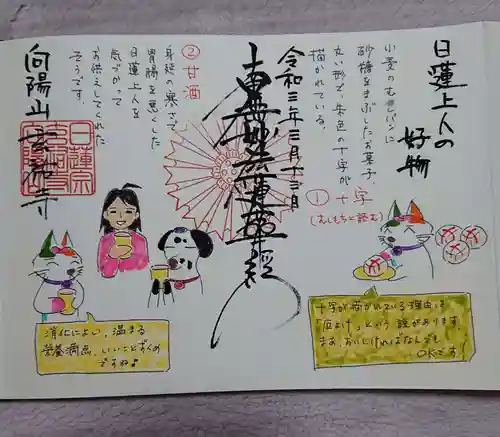 日蓮上人の
好物
小麦のむしパンに
砂糖をまぶしたお菓子。
丸い形で、朱色の十字が
描かれている。
① 十字
(むしもちと読む)
令和三年三月十三日
南無妙法蓮華経
② 甘酒
身延の寒さで
胃腸を悪くした
日蓮上人を
気づかって
お供えしてくれた
そうです。
向陽山
日蓮宗
消化によい、温まる
栄養満点、いいことずくめ
ですね♪
十字が描かれている理由は
「厄よけ」という説があります。
まあ、おいしければなんでも
OKです!